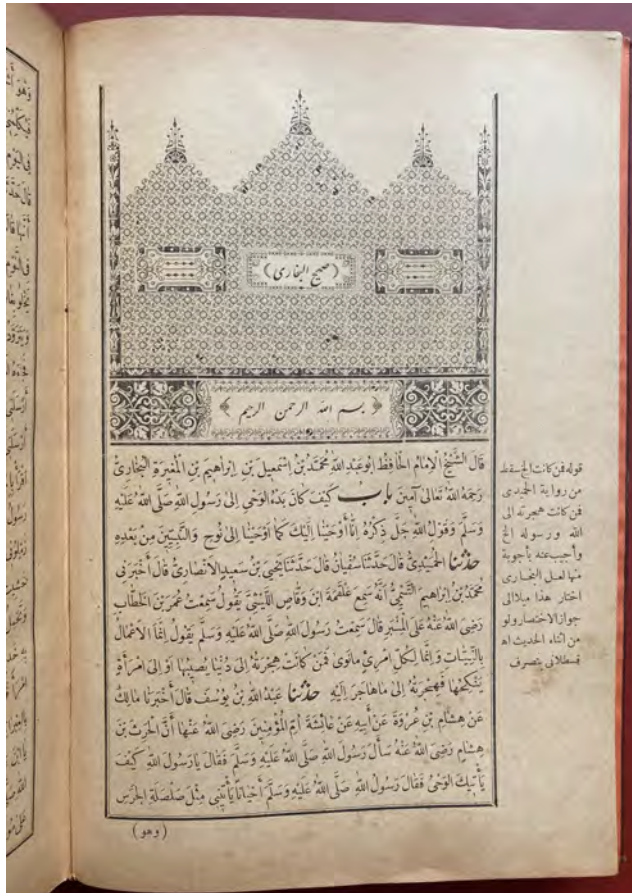 (صحيح البخارى)
﴿ بسم الله الرحمن الرحيم ﴾
قَالَ الشَّيْخُ الْإِمَامُ الْحَافِظُ أَبُو عَبْدِ اللَّهِ مُحَمَّدُ بْنُ إِسْمَعِيلَ بْنِ إِبْرَاهِيمَ بْنِ الْمُغِيرَةِ الْبُخَارِىُّ
رَحِمَهُ اللَّهُ تَعَالَى آمِينَ بَابُ كَيْفَ كَانَ بَدْءُ الْوَحْىِ إِلَى رَسُولِ اللَّهِ صَلَّى اللَّهُ عَلَيْهِ
وَسَلَّمَ وَقَوْلُ اللَّهِ جَلَّ ذِكْرُهُ إِنَّا أَوْحَيْنَا إِلَيْكَ كَمَا أَوْحَيْنَا إِلَى نُوحٍ وَالنَّبِيِّينَ مِنْ بَعْدِهِ
حَدَّثَنَا الْحُمَيْدِىُّ قَالَ حَدَّثَنَا سُفْيَانُ قَالَ حَدَّثَنَا يَحْيَى بْنُ سَعِيدٍ الْأَنْصَارِىُّ قَالَ أَخْبَرَنِى
مُحَمَّدُ بْنُ إِبْرَاهِيمَ التَّيْمِىُّ أَنَّهُ سَمِعَ عَلْقَمَةَ ابْنَ وَقَّاصٍ اللَّيْثِىَّ يَقُولُ سَمِعْتُ عُمَرَ بْنَ الْخَطَّابِ
رَضِىَ اللَّهُ عَنْهُ عَلَى الْمِنْبَرِ قَالَ سَمِعْتُ رَسُولَ اللَّهِ صَلَّى اللَّهُ عَلَيْهِ وَسَلَّمَ يَقُولُ إِنَّمَا الْأَعْمَالُ
بِالنِّيَّاتِ وَإِنَّمَا لِكُلِّ امْرِئٍ مَا نَوَى فَمَنْ كَانَتْ هِجْرَتُهُ إِلَى دُنْيَا يُصِيبُهَا أَوْ إِلَى امْرَأَةٍ
يَنْكِحُهَا فَهِجْرَتُهُ إِلَى مَا هَاجَرَ إِلَيْهِ حَدَّثَنَا عَبْدُ اللَّهِ بْنُ يُوسُفَ قَالَ أَخْبَرَنَا مَالِكٌ
عَنْ هِشَامِ بْنِ عُرْوَةَ عَنْ أَبِيهِ عَنْ عَائِشَةَ أُمِّ الْمُؤْمِنِينَ رَضِىَ اللَّهُ عَنْهَا أَنَّ الْحَرِثَ بْنَ
هِشَامٍ رَضِىَ اللَّهُ عَنْهُ سَأَلَ رَسُولَ اللَّهِ صَلَّى اللَّهُ عَلَيْهِ وَسَلَّمَ فَقَالَ يَا رَسُولَ اللَّهِ كَيْفَ
يَأْتِيكَ الْوَحْىُ فَقَالَ رَسُولُ اللَّهِ صَلَّى اللَّهُ عَلَيْهِ وَسَلَّمَ أَحْيَانًا يَأْتِينِى مِثْلَ صَلْصَلَةِ الْجَرَسِ
(وهو)
قوله فمن كانت الخ سقط
من رواية الحميدى
فمن كانت هجرته الى
الله ورسوله الخ
وأجيب عنه بأجوبة
منها لعل البخارى
اختار هذا ميلا الى
جواز الاختصار ولو
من اثناء الحديث اه
قسطلانى بتصرف